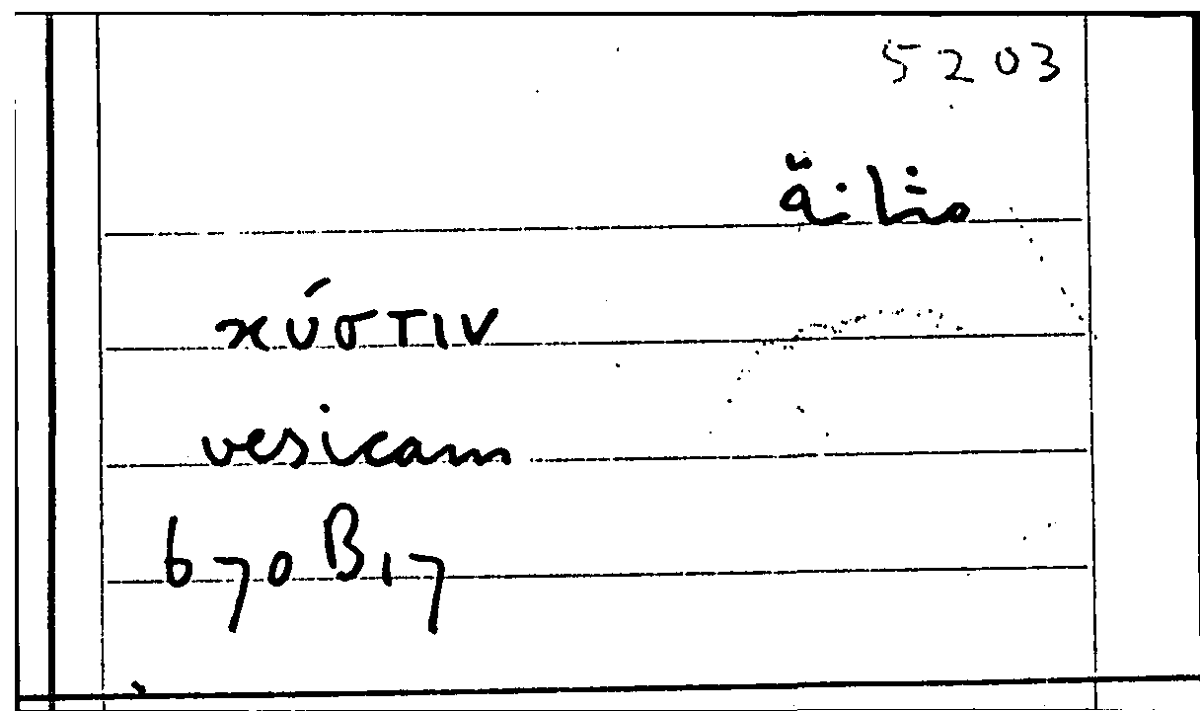 5203
مثانة
κύστιν
vesicam
670 B 17